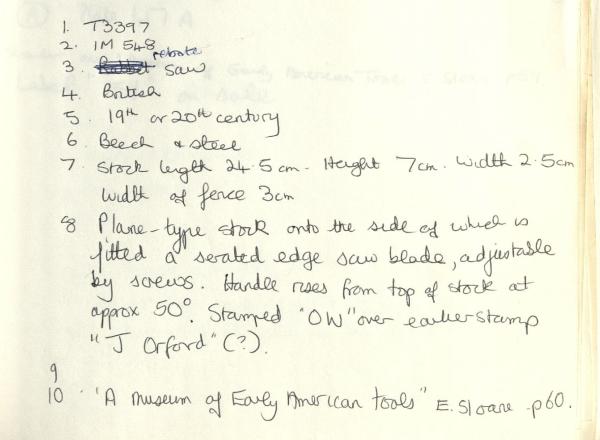 1. T3397
2. IM 548
3. rebate saw
4. British
5. 19th or 20th century
6. Beech & steel
7. Stock length 24.5cm - Height 7cm. Width 2.5cm
Width of fence 3cm
8 Plane-type stock onto the side of which is
fitted a serated edge saw blade, adjustable
by screws. Handle rises from top of stock at
approx 50°. Stamped "OW" over earlier stamp
"J Orford" (?).
9
10 . "A Museum of Early American tools" E. Sloane p60.